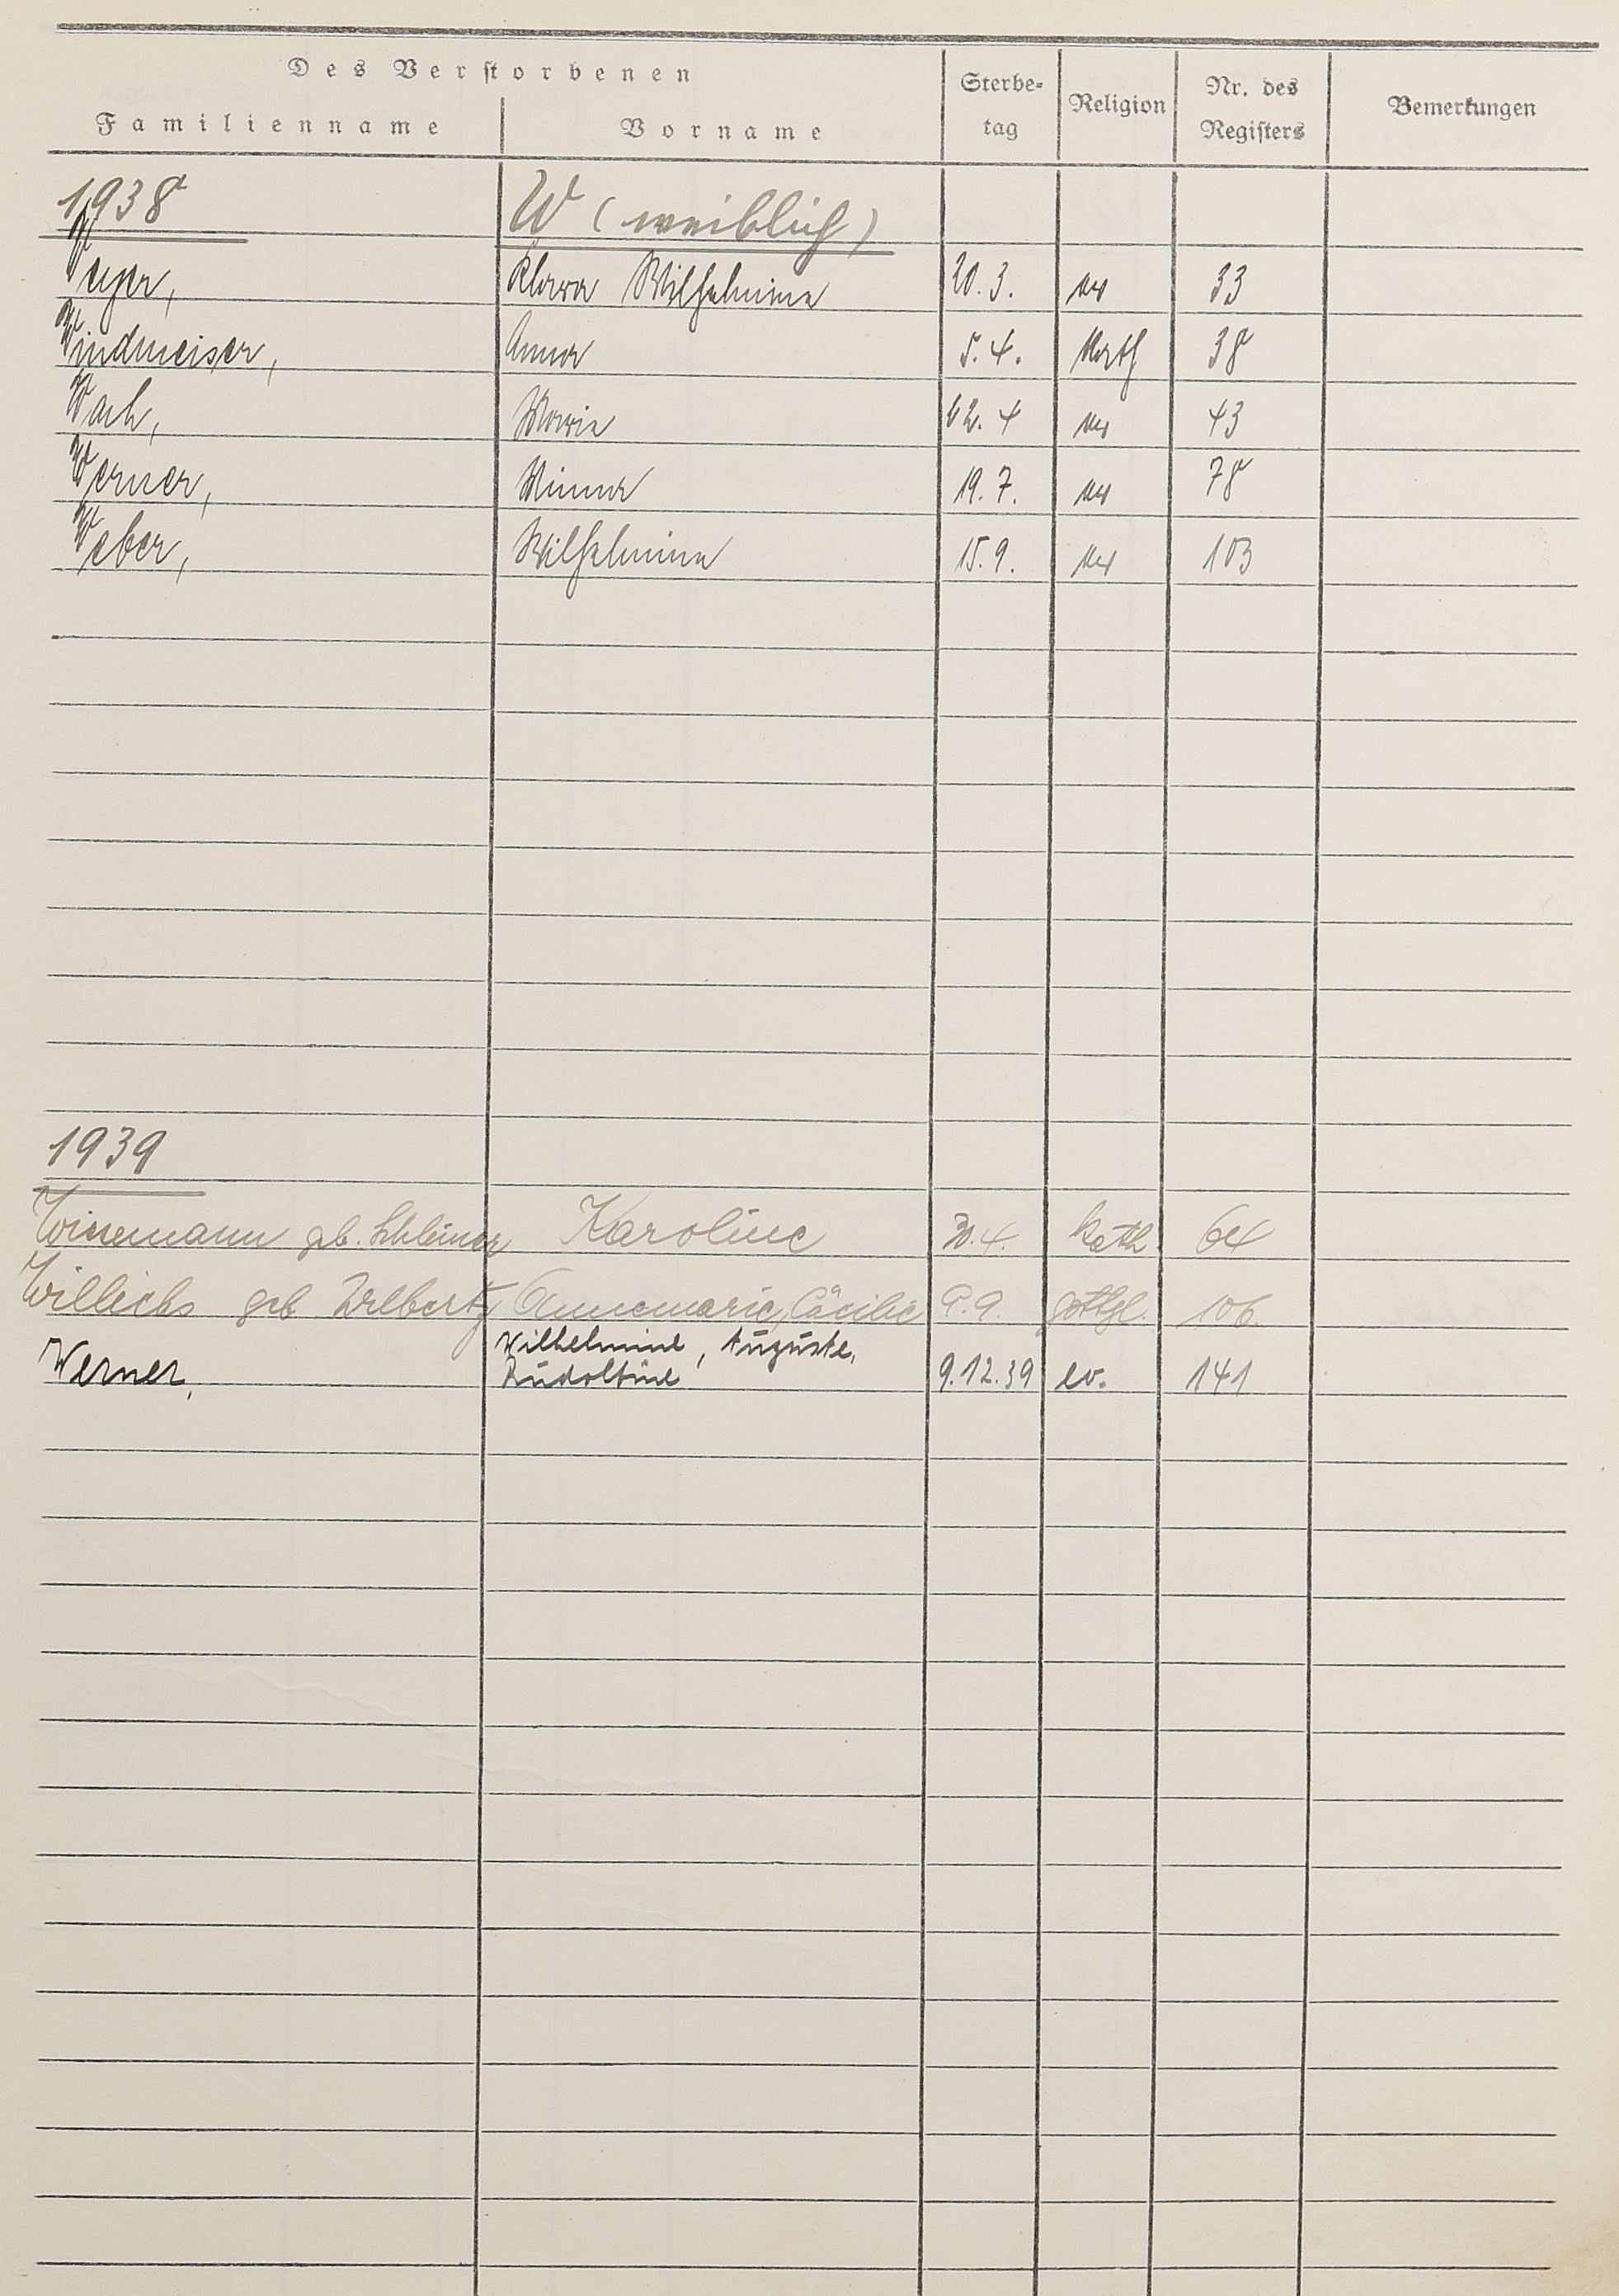 Des Verstorbenen
Familienname Vorname Sterbe- tag Religion Nr. des Registers Bemerkungen
1938 W (weiblich)
Weyer, Klara Wilhelmine 20.3. ev 33
Windmeiser, Anna 5.4. Kath 38
Wach, Marie 4 ev 43
Werner, Minna 19.7. ev 78
Weber, Wilhelmine 15.9. ev 103
1939
geb. Karoline 30.4. Kath
geb Annemarie, Cäcilie 9. gottgl. 106.
Wilhelmine, Auguste,
Werner, Rudolfine 9.12.39 ev. 141